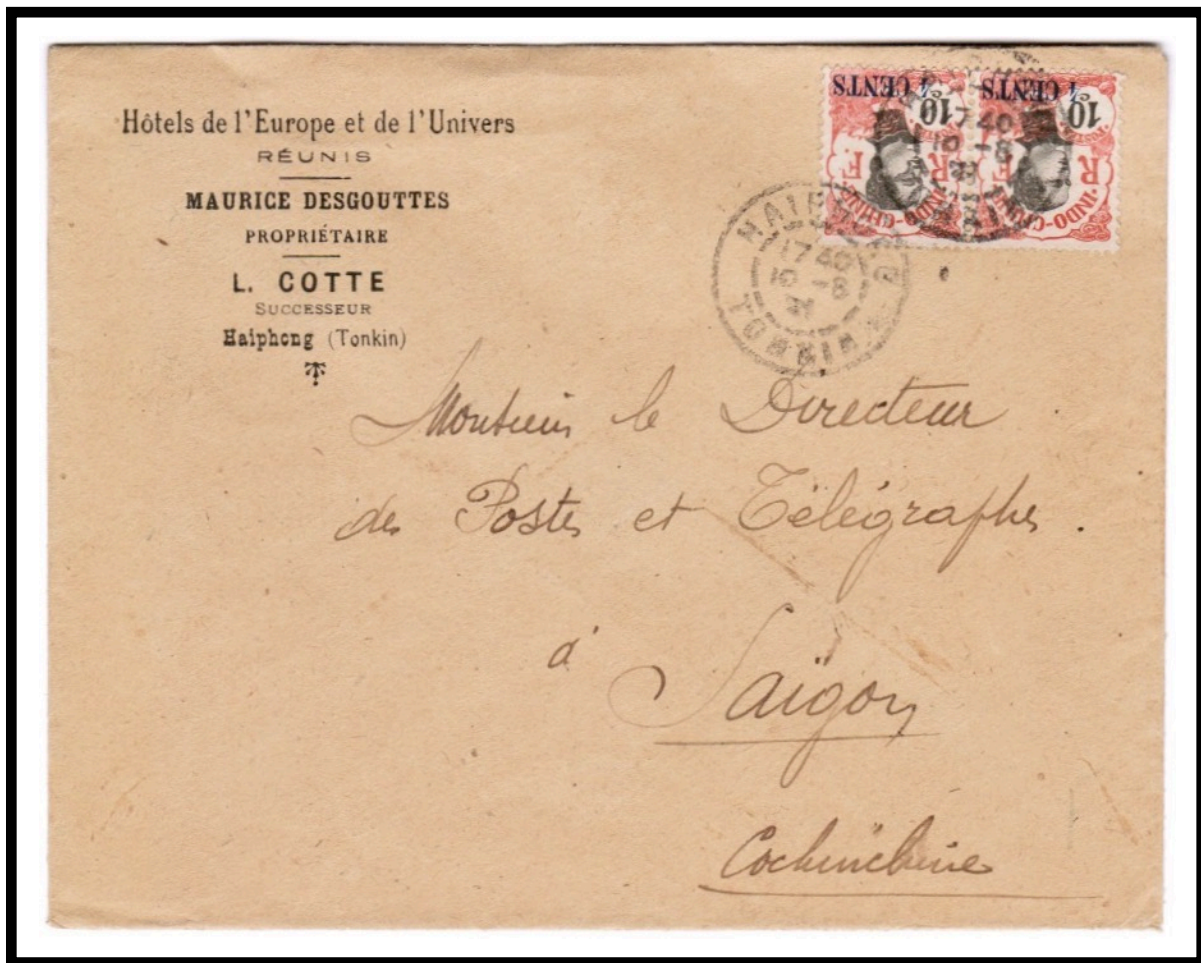 Hôtels de l'Europe et de l'Univers
RÉUNIS
MAURICE DESGOUTTES
PROPRIÉTAIRE
L. COTTE
SUCCESSEUR
Haiphong (Tonkin)
4 CENTS
10
R. F.
INDO-CHINE
4 CENTS
10
R. F.
INDO-CHINE
17 40
10 -8
HAIPHONG
17 40
10 -8
21
TONKIN
Monsieur le Directeur
des Postes et Télégraphes.
à
Saïgon
Cochinchine